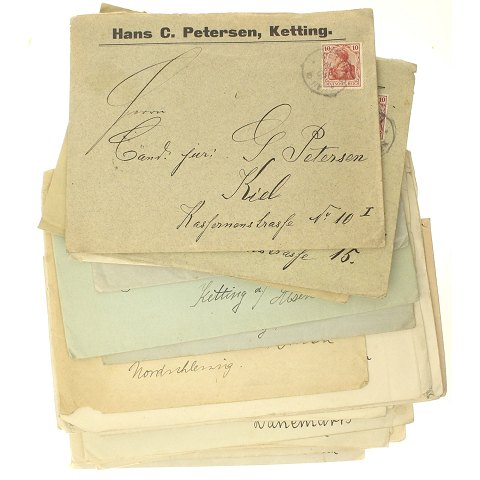 Hans C. Petersen, Ketting.
10
10
Herrn
Cand. jur: G Petersen
Kiel
Kasernenstrasse No 10 I
15.
Ketting a/ Alsen
Nordschleswig.
Danemark